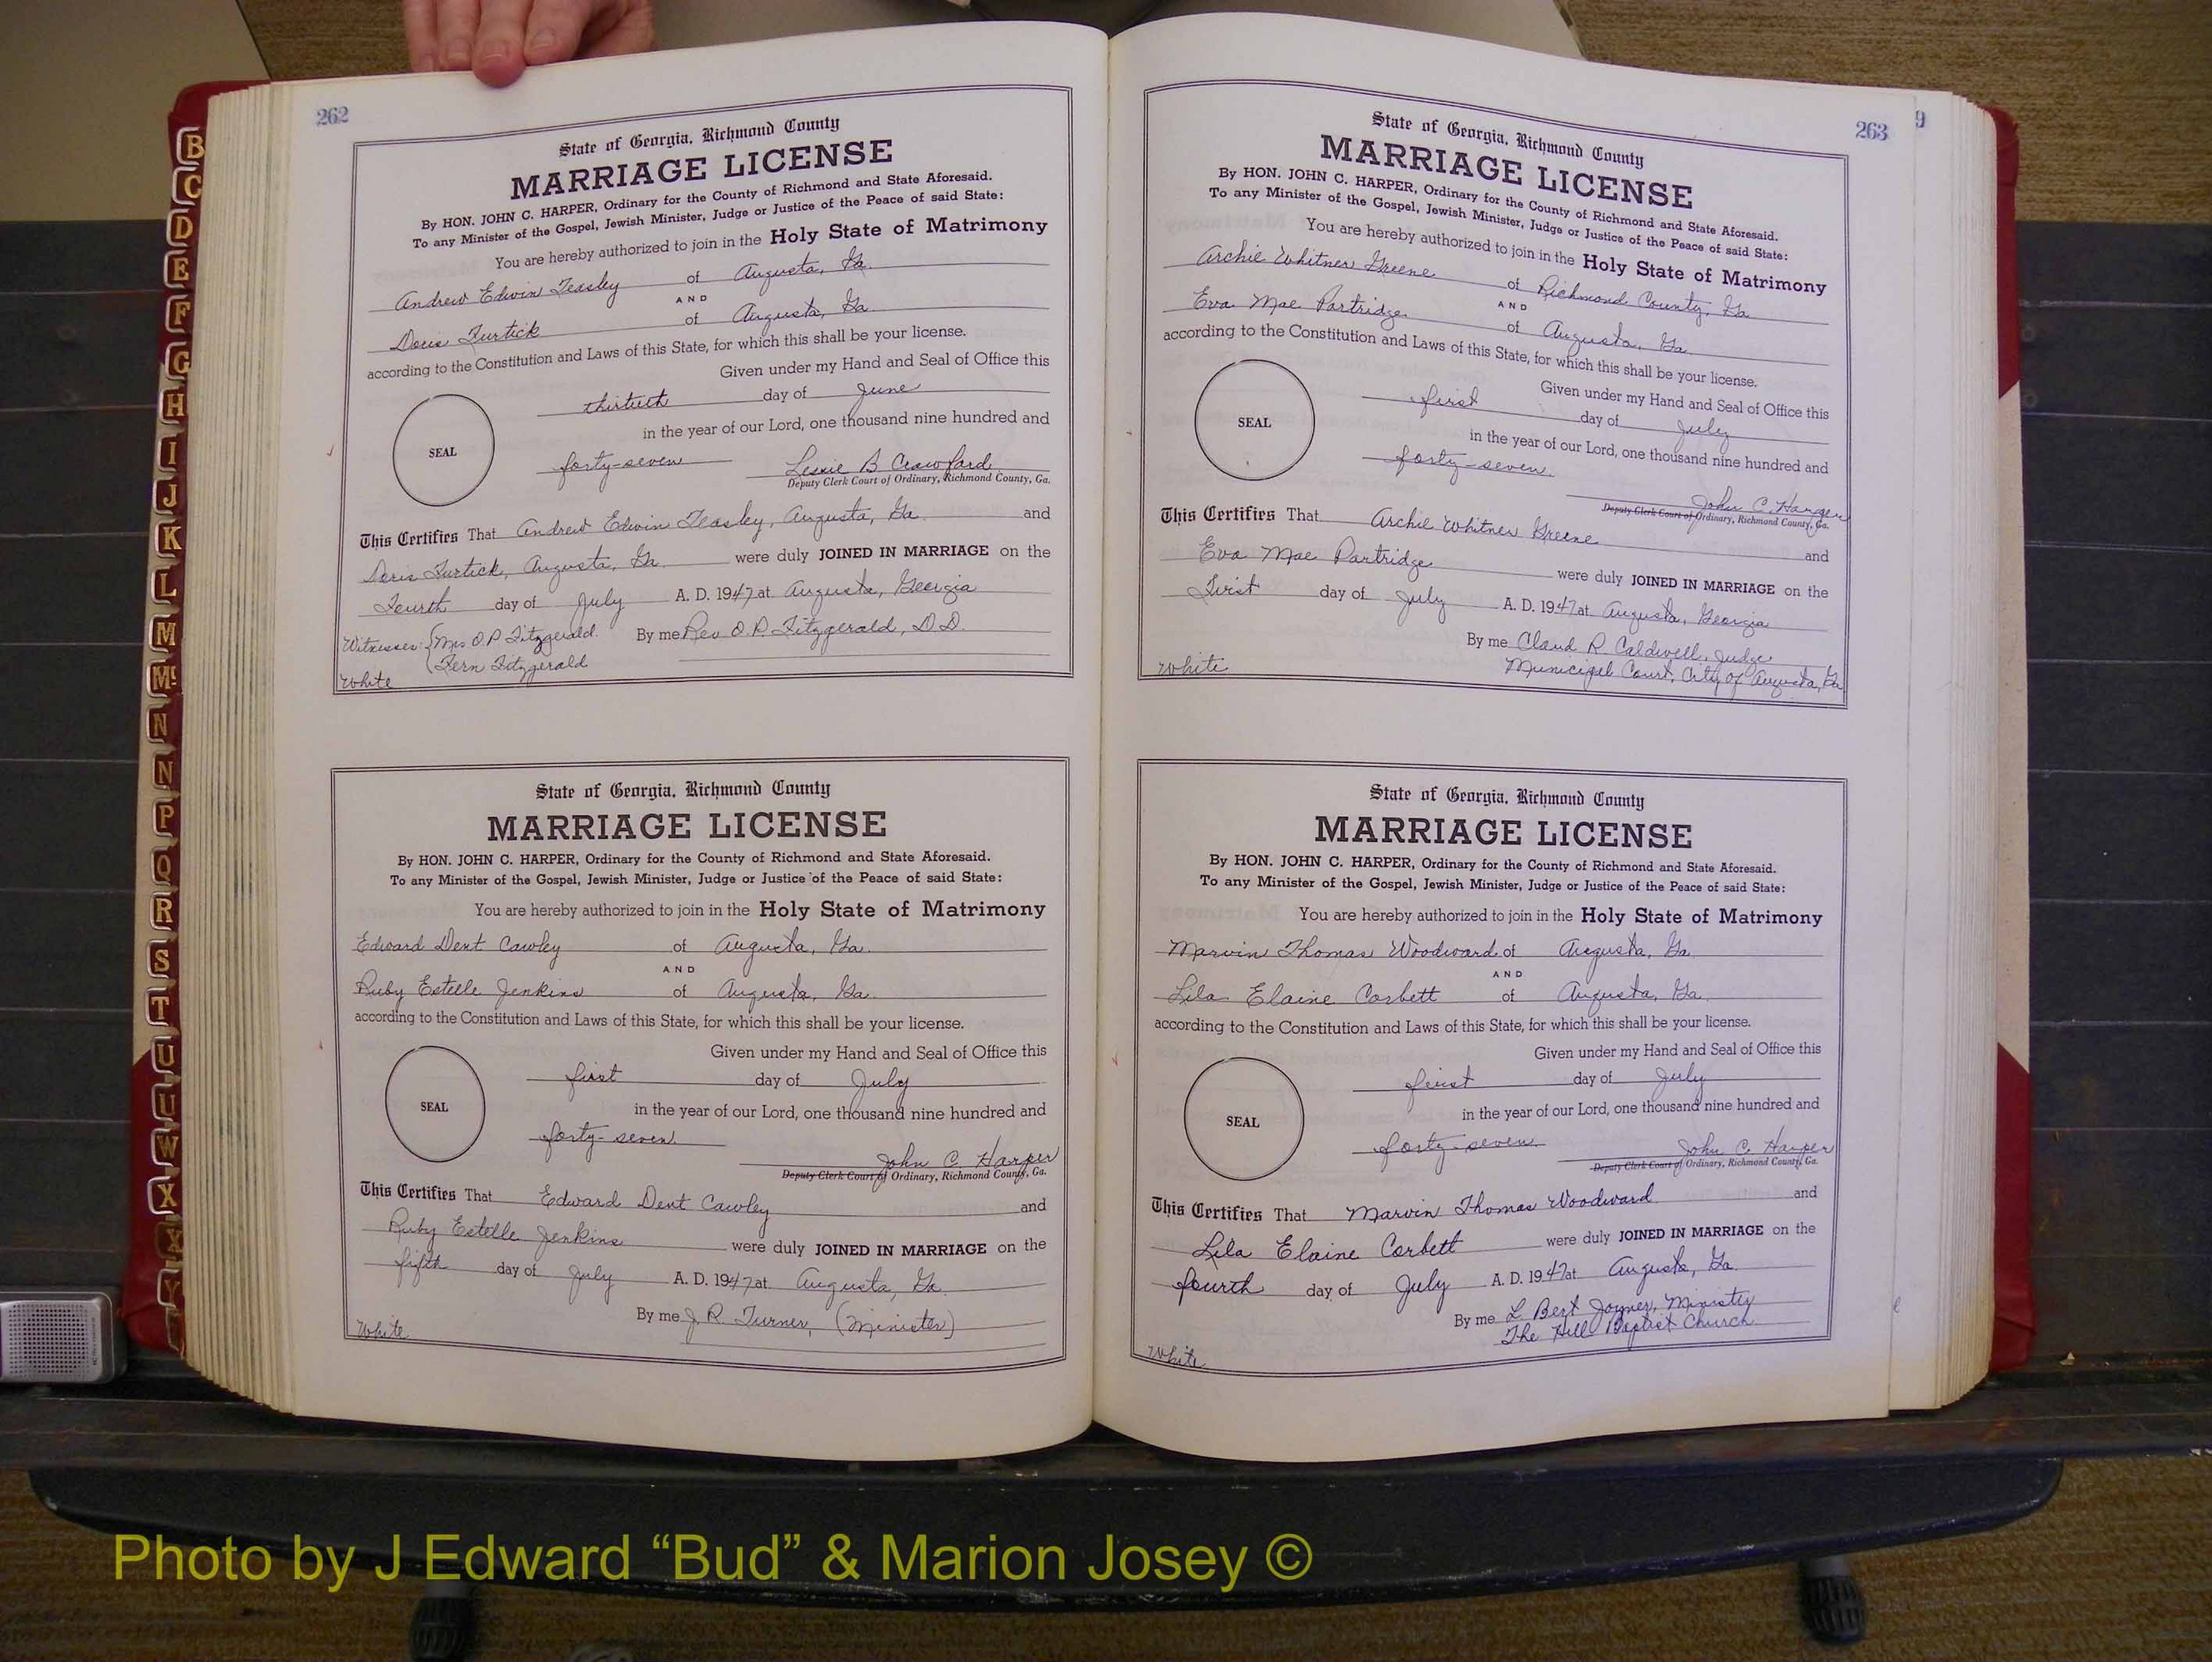 B
C
D
E
F
G
H
I
J
K
L
M
Mc
N
N
P
Q
R
S
T
U
U
W
X
X
Y
262
State of Georgia, Richmond County
MARRIAGE LICENSE
By HON. JOHN C. HARPER, Ordinary for the County of Richmond and State Aforesaid.
To any Minister of the Gospel, Jewish Minister, Judge or Justice of the Peace of said State:
You are hereby authorized to join in the Holy State of Matrimony
Andrew Edwin Teasley of Augusta, Ga.
AND
Doris Furtick of Augusta, Ga.
according to the Constitution and Laws of this State, for which this shall be your license.
Given under my Hand and Seal of Office this
thirtieth day of June
in the year of our Lord, one thousand nine hundred and
SEAL
forty-seven Lessie B Crawford
Deputy Clerk Court of Ordinary, Richmond County, Ga.
This Certifies That Andrew Edwin Teasley, Augusta, Ga and
Doris Furtick, Augusta, Ga. were duly JOINED IN MARRIAGE on the
Fourth day of July A. D. 1947 at Augusta, Georgia
Witnesses: Mrs O P Fitzgerald. By me Rev O. P. Fitzgerald, D D.
Fern Fitzgerald
White
State of Georgia, Richmond County
MARRIAGE LICENSE
By HON. JOHN C. HARPER, Ordinary for the County of Richmond and State Aforesaid.
To any Minister of the Gospel, Jewish Minister, Judge or Justice of the Peace of said State:
You are hereby authorized to join in the Holy State of Matrimony
Edward Dent Cawley of Augusta, Ga.
AND
Ruby Estelle Jenkins of Augusta, Ga.
according to the Constitution and Laws of this State, for which this shall be your license.
Given under my Hand and Seal of Office this
first day of July
in the year of our Lord, one thousand nine hundred and
SEAL
forty-seven
John C. Harper
Deputy Clerk Court of Ordinary, Richmond County, Ga.
This Certifies That Edward Dent Cawley and
Ruby Estelle Jenkins were duly JOINED IN MARRIAGE on the
fifth day of July A. D. 1947 at Augusta, Ga.
By me J. R. Turner, (Minister)
White
263
9
State of Georgia, Richmond County
MARRIAGE LICENSE
By HON. JOHN C. HARPER, Ordinary for the County of Richmond and State Aforesaid.
To any Minister of the Gospel, Jewish Minister, Judge or Justice of the Peace of said State:
You are hereby authorized to join in the Holy State of Matrimony
Archie Whitner Greene of Richmond County, Ga
AND
Eva Mae Partridge of Augusta, Ga
according to the Constitution and Laws of this State, for which this shall be your license.
Given under my Hand and Seal of Office this
first day of July
in the year of our Lord, one thousand nine hundred and
SEAL
forty-seven.
John C. Harper
Deputy Clerk Court of Ordinary, Richmond County, Ga.
This Certifies That Archie Whitner Greene and
Eva Mae Partridge were duly JOINED IN MARRIAGE on the
First day of July A. D. 1947 at Augusta, Georgia
By me Claud R Caldwell, Judge
Municipal Court, City of Augusta, Ga
White
State of Georgia, Richmond County
MARRIAGE LICENSE
By HON. JOHN C. HARPER, Ordinary for the County of Richmond and State Aforesaid.
To any Minister of the Gospel, Jewish Minister, Judge or Justice of the Peace of said State:
You are hereby authorized to join in the Holy State of Matrimony
Marvin Thomas Woodward of Augusta, Ga.
AND
Lila Elaine Corbett of Augusta, Ga.
according to the Constitution and Laws of this State, for which this shall be your license.
Given under my Hand and Seal of Office this
first day of July
in the year of our Lord, one thousand nine hundred and
SEAL
forty-seven
John C. Harper
Deputy Clerk Court of Ordinary, Richmond County, Ga.
This Certifies That Marvin Thomas Woodward and
Lila Elaine Corbett were duly JOINED IN MARRIAGE on the
fourth day of July A. D. 1947 at Augusta, Ga.
By me L. Bert Joyner, Minister
The Hill Baptist Church
White
Photo by J Edward “Bud” & Marion Josey ©